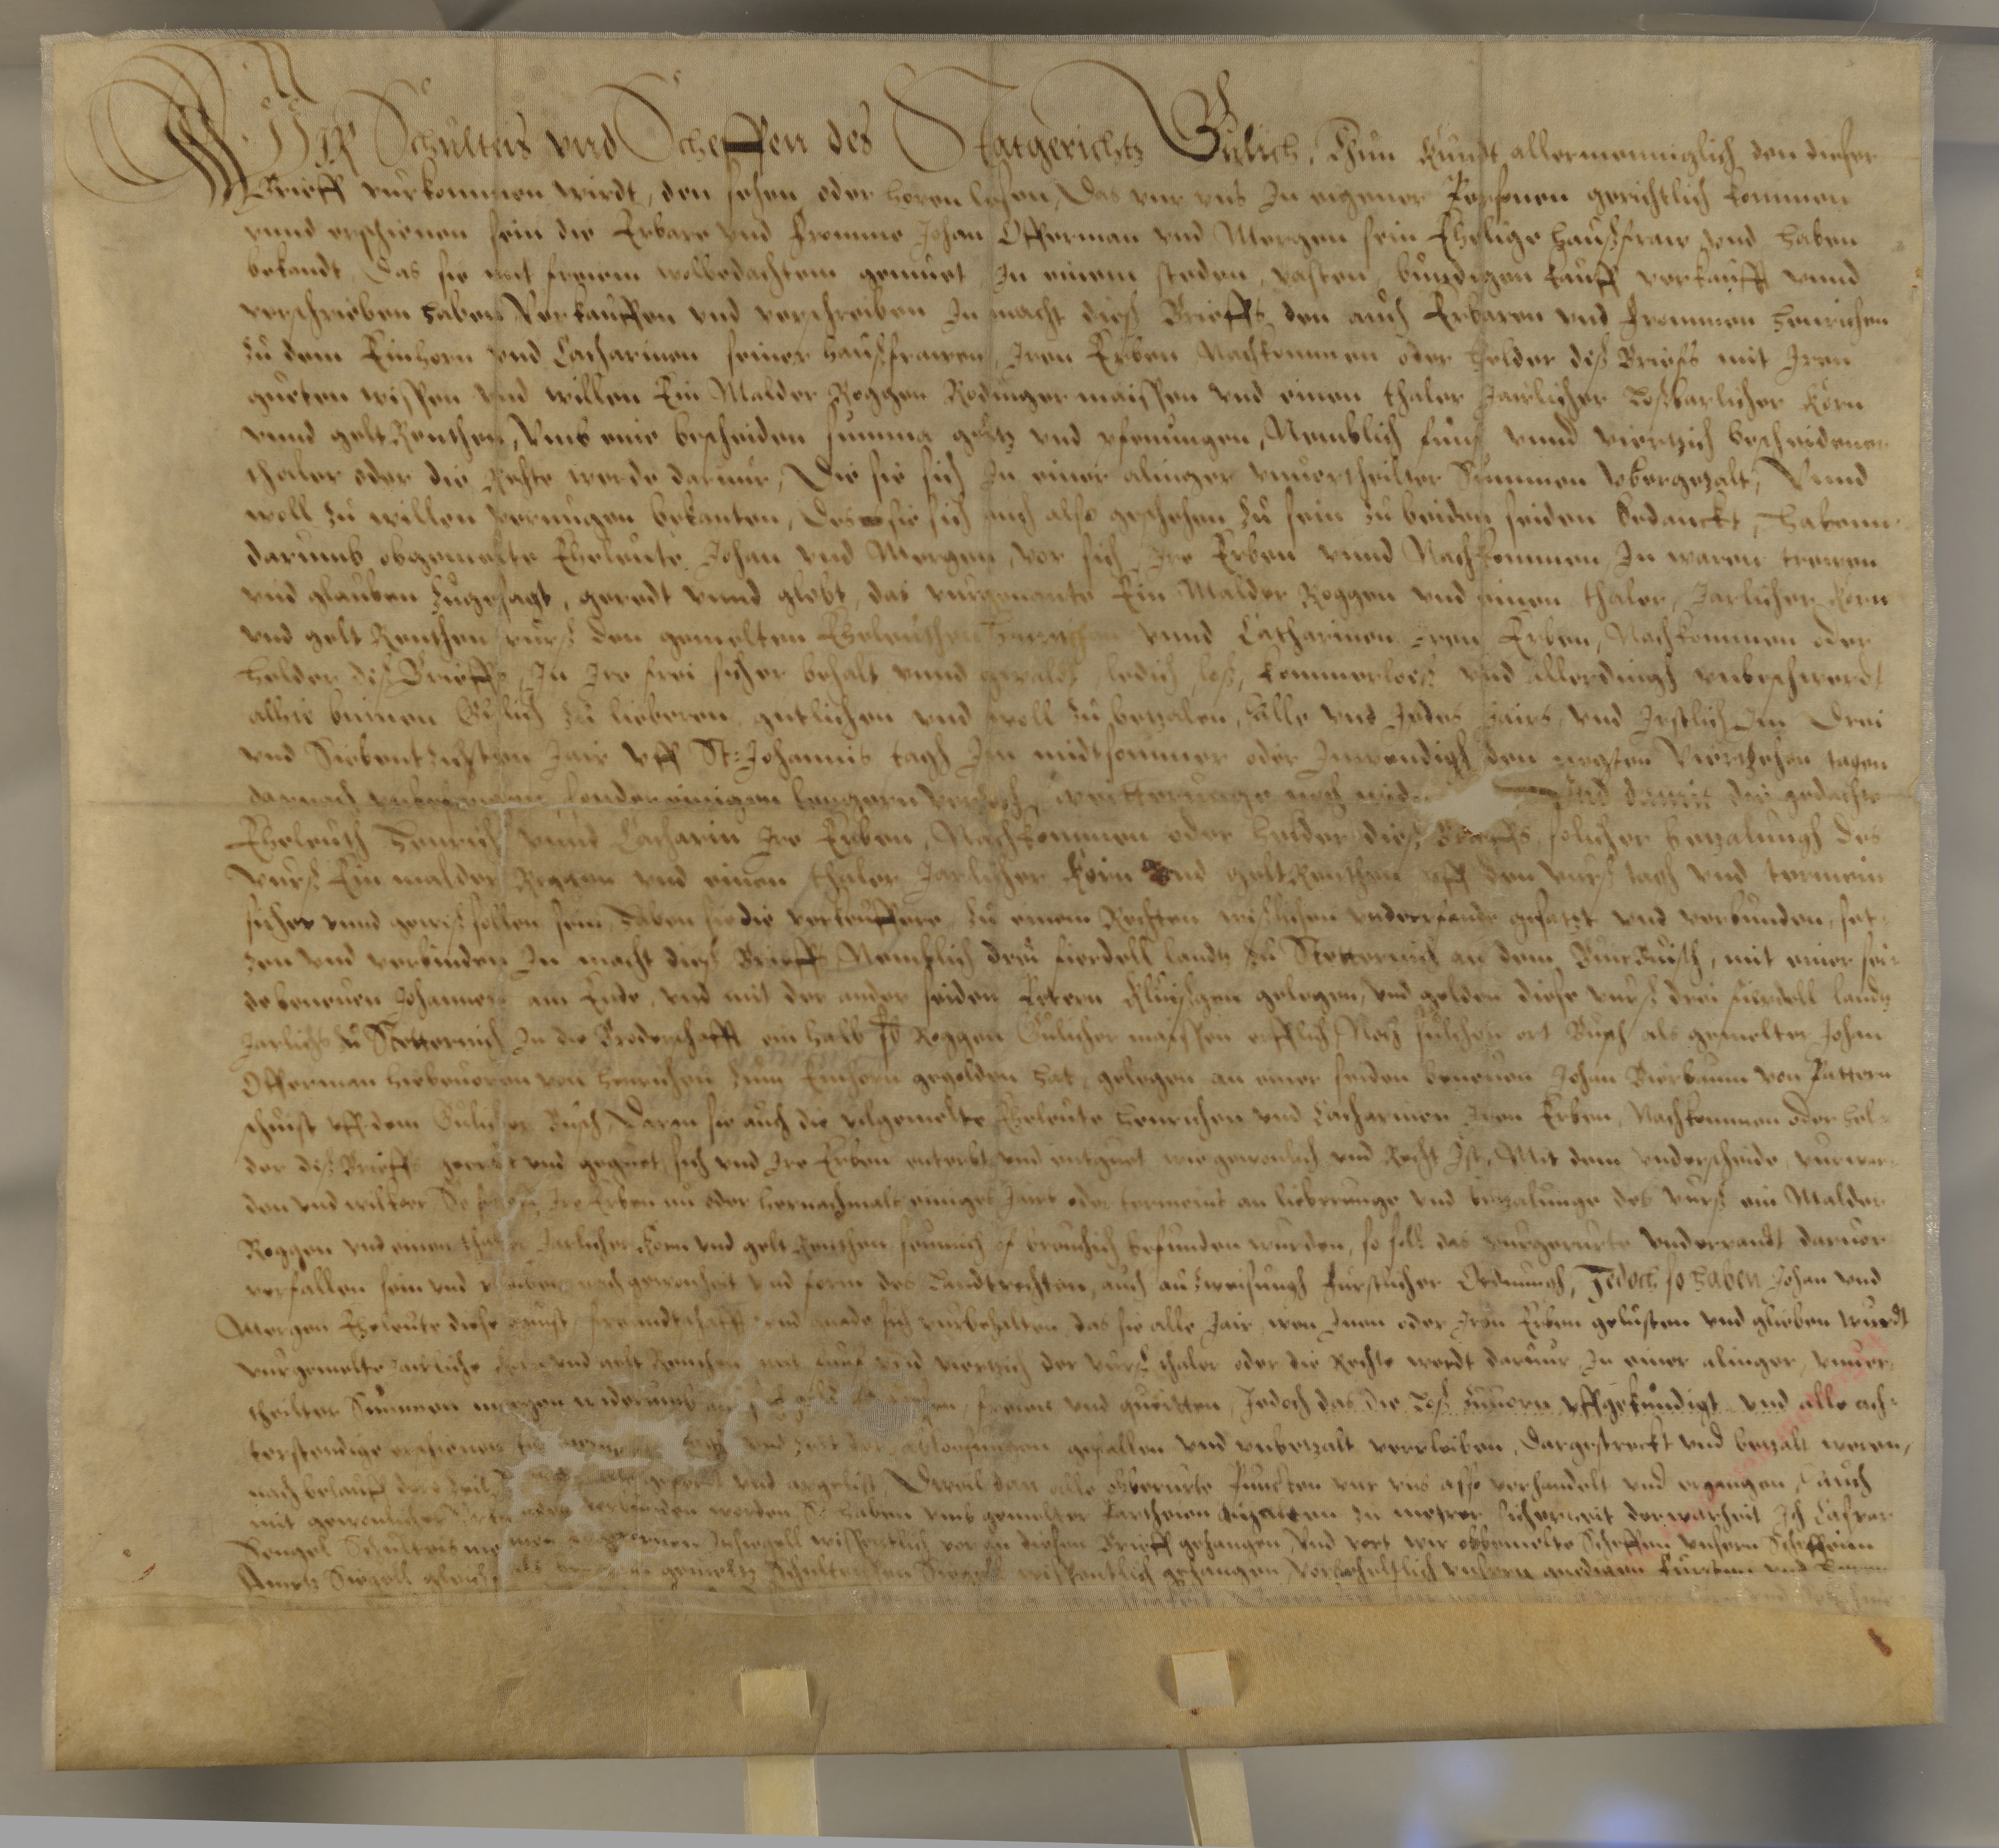 Wir Schulteis vnd Scheffen des Statgerichtz Gulich, Thun kundt allermenniglich den dieser
Brieff vurkommen wirdt, den sehen oder horen lesen, Das vur vns In eigener Personen gerichtlich kommen
vnnd erschienen sein die Erbare vnd fromme Johan Offerman vnd Mergen sein Ehelige haußfraw vnd haben
bekandt, Das sie mit freiem wolbedachtem gemuet, In einem steden, vasten, bundigen kauff verkaufft vnnd
verschrieben haben, Verkauffen vnd verschreiben In macht dieß Brieffs, den auch Erbaren vnd frommen Henrichen
zu dem Einhorn vnd Catharinen seiner haußfrawen, Iren Erben Nachkommen oder helder diß Brieffs mit Iren
gueten wissen vnd willen Ein Malder Roggen Rodinger maissen vnd einen thaler Jairlicher Loßbarlicher Korn
vnnd gelt Renthen, Vmb eine bescheiden summa geltz vnd pfenningen, Nemblich funff vnnd viertzich bescheidener
thaler oder die Rechte werde daruur, Die sie sich In einer alinger vnuertheilter Summen vbergezalt, Vnnd
woll zu willen vernugen bekanten, Des sie sich auch also geschehen zu sein zu beiden seiden bedanckt, Habenn
darumb obgemelte Eheleute Johan vnd Mergen, vor sich Ire Erben vnnd Nachkommen In waren trewen
vnd glauben zugesagt, geredt vnnd globt, das vurgenante Ein Malder Roggen vnd einen thaler, Jarlicher Korn
vnd gelt Renthen vurß den gemelten Eheleuthen Henrichen vnnd Catharinen Iren Erben, Nachkommen oder
helder diß Brieffs, In Ire frei sicher behalt vnnd gewaldt, ledich, loß, kommerloeß vnd allerdingß vnbeschwerdt
alhie binnen Gulich zu lieberen, gutlichen vnd woll zu betzalen, Alle vnd Jedes Jairs, vnd Irstlich Im Drei
vnd Siebentzichsten Jair vff St: Johannis tagh Im midtsommer oder Inwendigh den negsten Viertzehen tagen
darnach vnbefangen sonder einigen lengern vertzoch, weitterunge noch Vnd damit die gedachte
Eheleuth Henrich vnnd Catharin Ire Erben, Nachkommen oder helder dieß Brieffs, solicher betzalungh des
vurß Ein malder Roggen vnd einen thaler Jarlicher Korn vnd gelt Renthen vff den vurß tagh vnd termein
sicher vnnd gewiß sollen sein, Haben sie die verkeuffere zu einem Rechten wißlichen vnderpfande gesatzt vnd verbunden, set-
zen vnd verbinden In macht dieß Brieffs, Nemblich drei fierdell landtz zu Stetternich an dem Busch, mit einer sei-
de beneuen Johannes am Ende, vnd mit der ander seiden Petern gelegen, vnd gelden diese vurß drei fierdell landtz
Jarlichs zu Stetternich In die Broderschafft ein halb Roggen Gulicher maissen erfflich, Noch sulchen ort Busch als gemelter Johan
Offerman hiebeuoren von Henrichen zum Einhorn gegolden hat, gelegen an einer seiden beneuen Johan Bierbaum von Pattern
schuist vff dem Gulicher Busch, Daran sie auch die vilgemelte Eheleute Henrichen vnd Catharinen Iren Erben, Nachkommen oder hel-
der diß Brieffs geerbt vnd geguet, sich vnd Ire Erben enterbt vnd entguet wie gewonlich vnd Recht Ist, Mit dem vnderscheide, vurwar-
den vnd wilkoer So sie Ire Erben nu oder hernachmals einiges Jairs oder termeins an lieberunge vnd betzalunge des vurß ein Malder
Roggen vnd einen thaler Jarlicher Korn vnd gelt Renthen seumich befunden wurden, so soll das vurgerurte Vnderpandt daruor
verfallen sein vnd pleiben nach gewonheit vnd form des Landtrechten, auch außweisungh Furstlicher Ordnungh, Jedoch so haben Johan vnd
Mergen Eheleute diese gunst, freundtschafft vnd gnade sich vurbehalten, das sie alle Jair, wen Inen oder Iren Erben gelusten vnd glieben wurdt
vurgemelte Jairliche Korn vnd gelt Renthen mit funff vnd viertzich der vurß thaler oder die Rechte werdt daruur In einer alinger, vnuer-
theilter Summen mogen widerumb freien vnd queitten, Jedoch das die Loß zuuorn vffgekundigt vnd alle ach-
terstendige erschienen vnd gefallen vnd vnbetzalt verpleiben, Dargestreckt vnd betzalt weren,
nach belauff der zeit vnd argelist, Dweil dan alle obberurte Puncten vur vns also verhandelt vnd ergangen, Auch
mit gewonlicher verbunden worden, So haben vmb gemelter Partheien In mehrer sicherheit der warheit Ich Casper
Sengel Schulteis mein eigen Insiegell wissentlich vor an diesen Brieff gehangen, Vnd vort wir obgemelte Scheffen vnsern Scheffen
Ampts Siegell gleichs gemeltz Schulteissen Siegell wissentlich gehangen, Vorbeheltlich vnsern gnedigen Fursten vnd Herrn